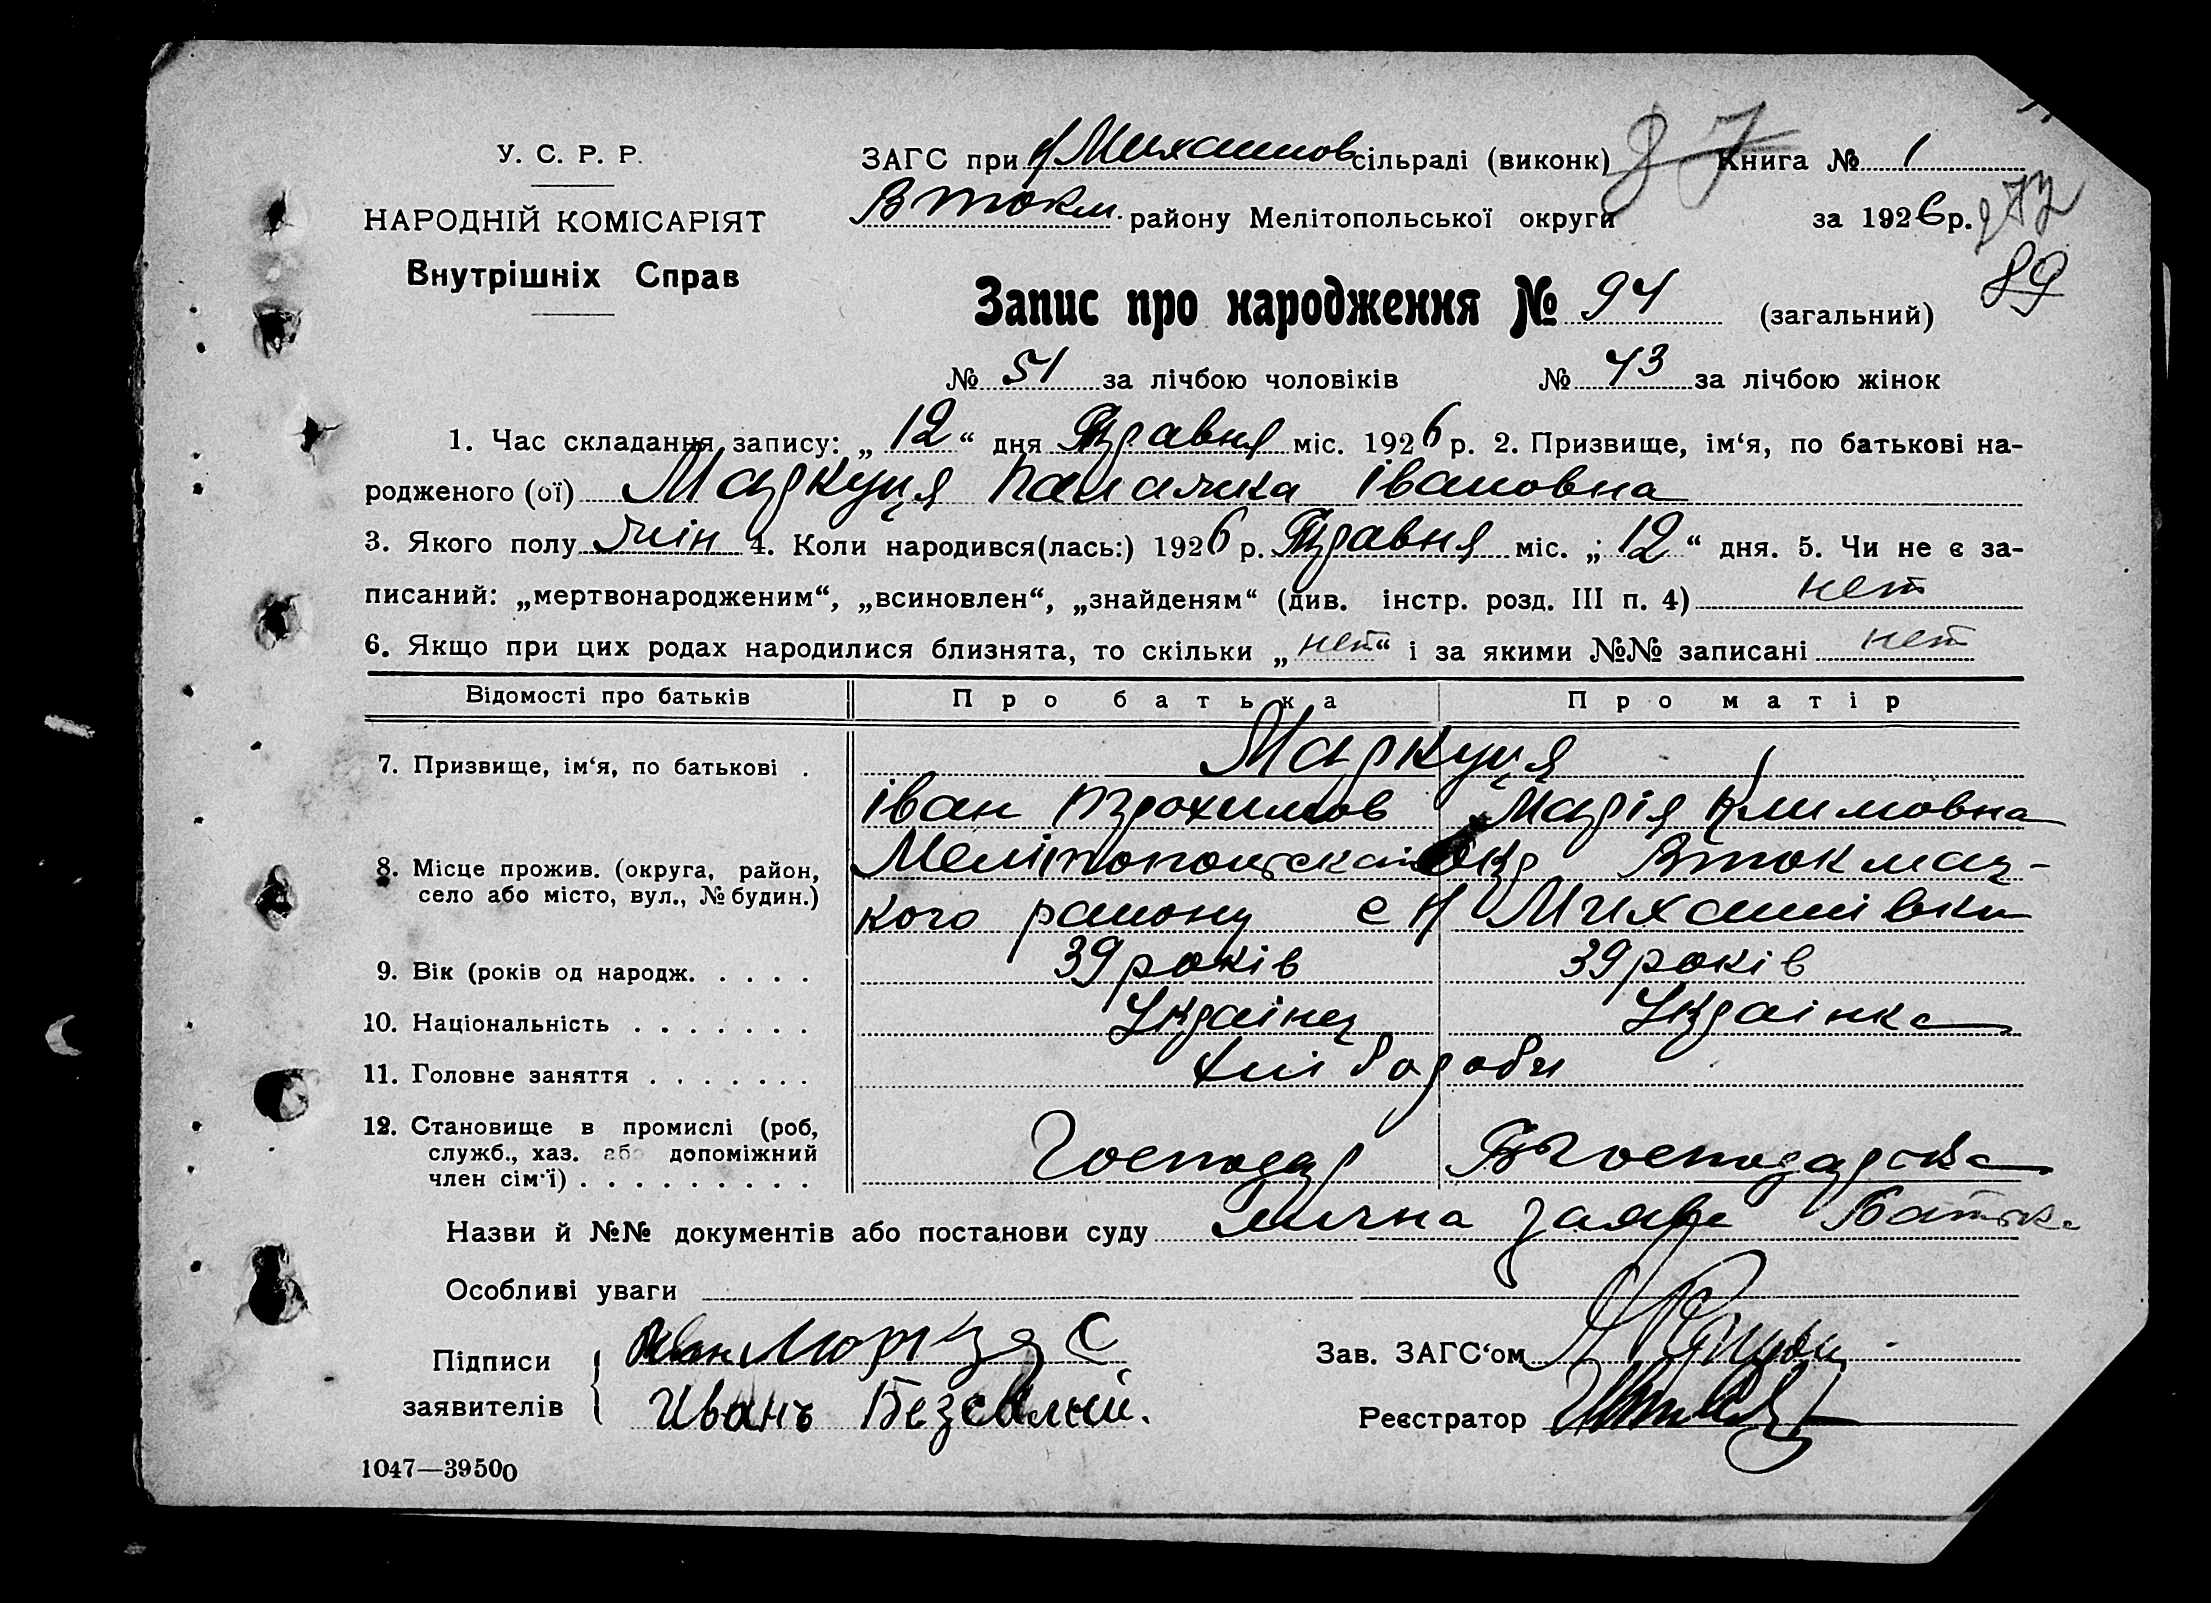 У. С. Р. Р.
НАРОДНІЙ КОМІСАРІЯТ
Внутрішніх Справ
ЗАГС при Н Михайлов сільраді (виконк) 87 Книга № 1
В токм. району Мелітопольської округи за 1926 р.
89
Запис про народження № 94 (загальний)
№ 51 за лічбою чоловіків № 43 за лічбою жінок
1. Час складання запису: „ 12 “ дня Травня міс. 1926 р. 2. Призвище, ім‘я, по батькові на-
родженого (ої) Маркуця Івановна
3. Якого полу жін 4. Коли народився(лась:) 1926 р. Травня міс. „ 12 “ дня. 5. Чи не є за-
писаний: „мертвонародженим“, „всиновлен“, „знайденям“ (див. інстр. розд. III п. 4) нет
6. Якщо при цих родах народилися близнята, то скільки „ нет “ і за якими №№ записані нет
Відомості про батьків Про батька Про матір
7. Призвище, ім‘я, по батькові . Маркуця
Іван Трохимов Марія Климовна
8. Місце прожив. (округа, район, село або місто, вул., № будин.) Мелітопольскай Окр Втокмац-
кого району с Н Михайлівки
9. Вік (років од народж. . . . . 39 років 39 років
10. Національність . . . . . . . Українец Українка
11. Головне заняття . . . . . . . хлібороби
12. Становище в промислі (роб, служб., хаз. або допоміжний член сім‘ї) . . . . . . . . . Господар Господарка
Назви й №№ документів або постанови суду лична заява Батька
Особливі уваги
Підписи заявителів
Иванъ
Зав. ЗАГС‘ом
Реєстратор
1047—39500